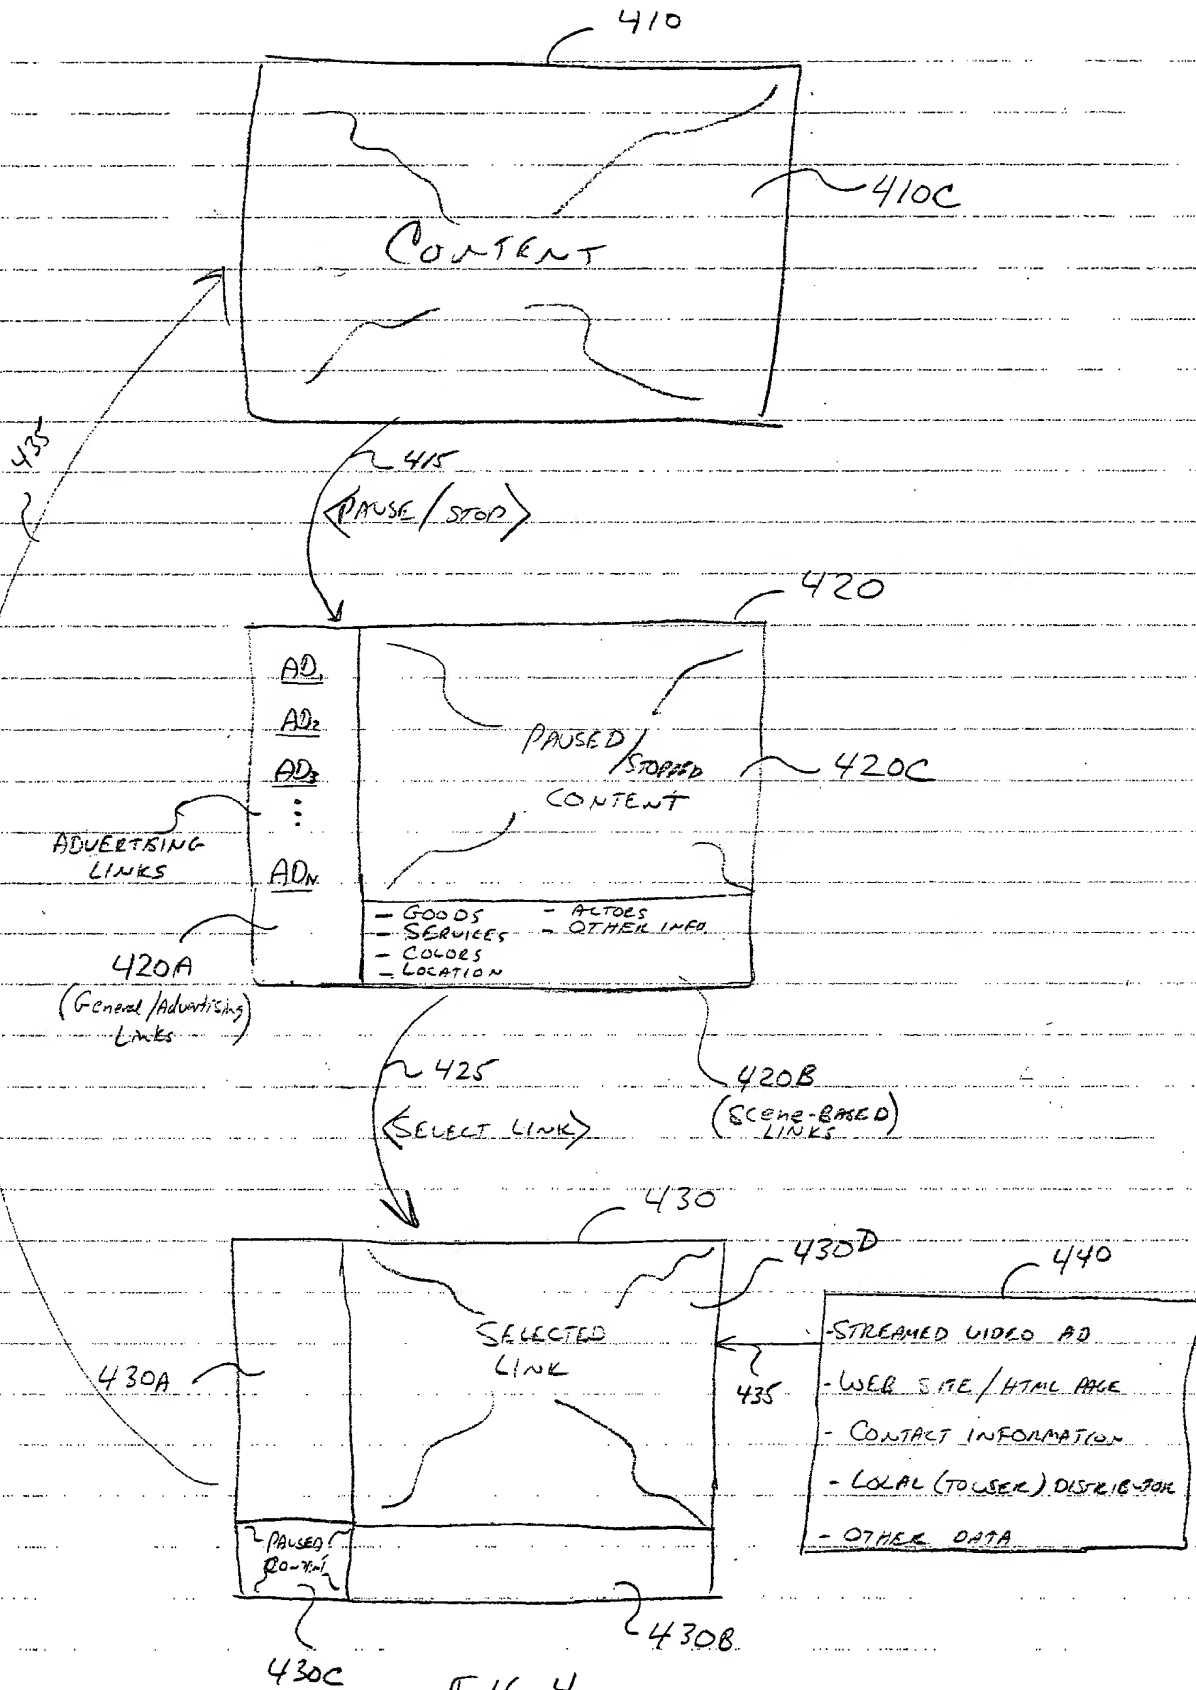 410
410C
CONTENT
435
415
<PAUSE/STOP>
420
AD1
AD2
AD3
PAUSED/
STOPPED
CONTENT
420C
ADVERTISING
LINKS
ADN
- GOODS
- SERVICES
- COLORS
- LOCATION
- ACTORS
- OTHER INFO.
420A
(General/Advertising)
Links
425
<SELECT LINK>
420B
(SCene-BASED)
LINKS
430
430D
440
SELECTED
LINK
430A
435
-STREAMED VIDEO AD
-WEB SITE/HTML PAGE
- CONTACT INFORMATION
- LOCAL (TO USER) DISTRIBUTOR
- OTHER DATA
PAUSED
CONTENT
430B
430C
FIG. 4